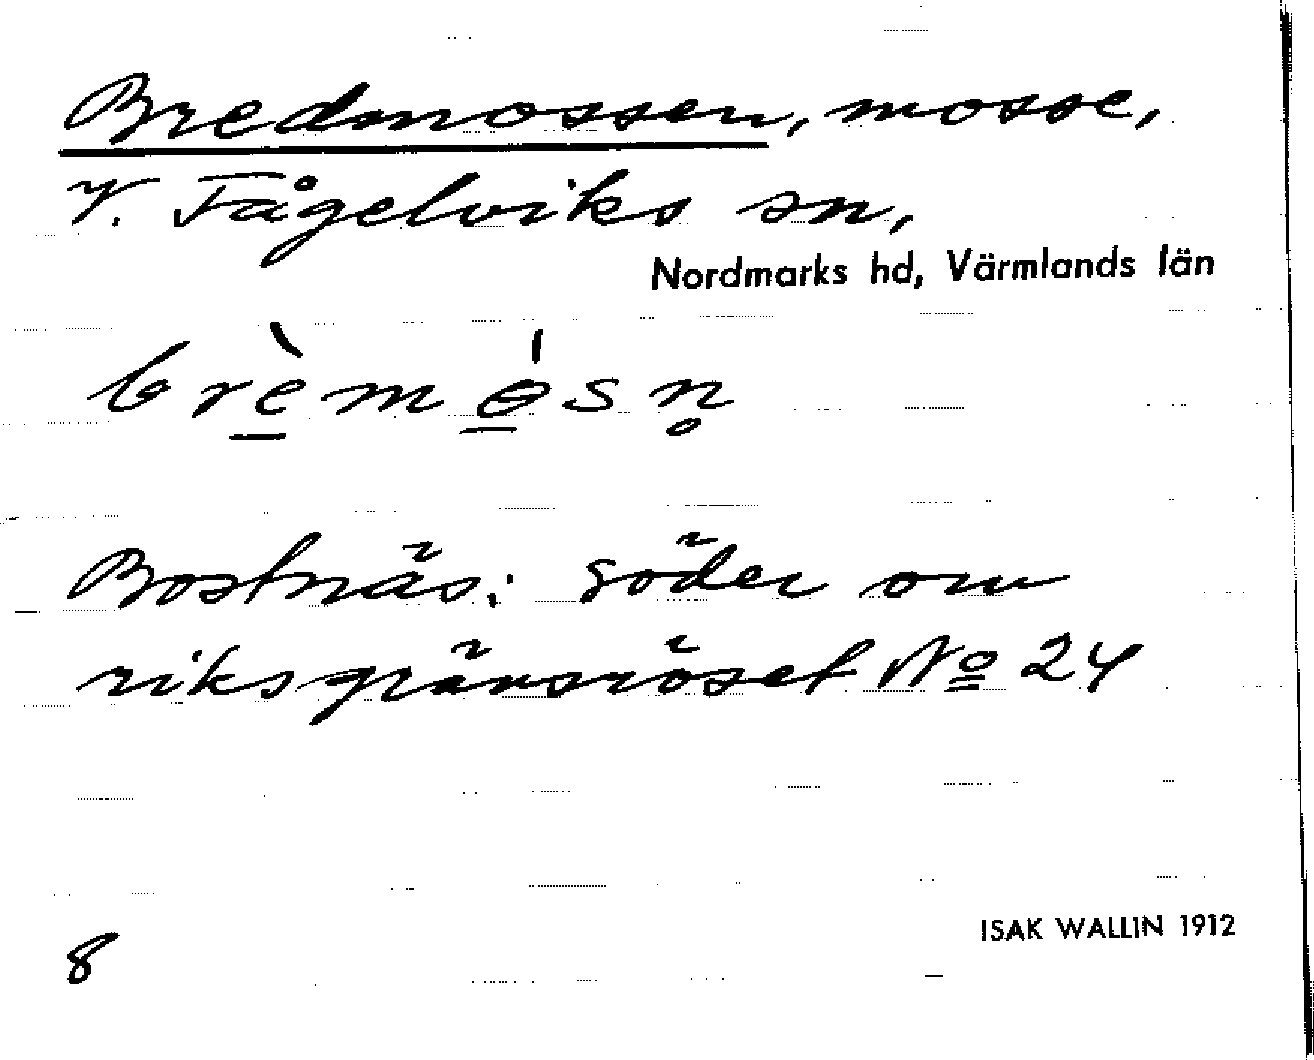 Bredmossen, mosse,
V. Fågelviks sn,
Nordmarks hd, Värmlands län
brè̱mɵ̱́sn̥
Bostnäs: söder om
riksgränsröset No 24
8
ISAK WALLIN 1912